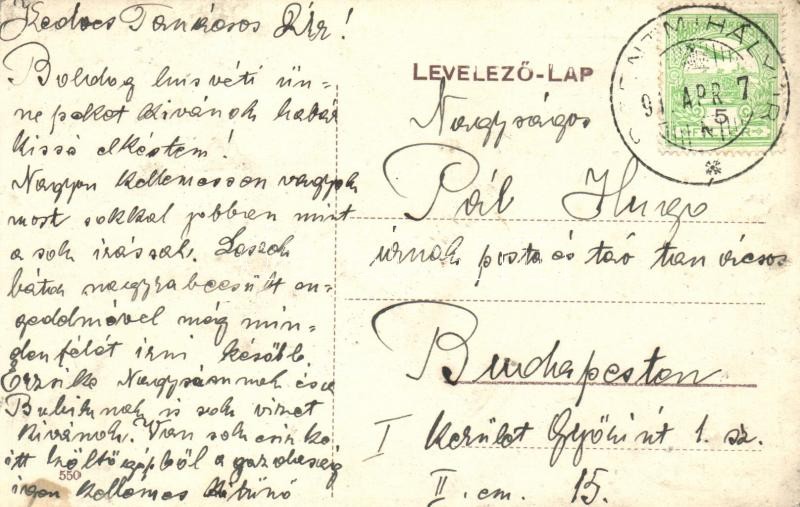 Kedves Tanácsos Úr!
Boldog husvéti ün-
nepeket kivánok habár
kissé elkéstem!
Nagyon kellemesen vagyok
most sokkal jobban mint
a sok irással. Leszek
bátor nagyrabecsült en-
gedelmével még min-
denfélét irni később.
Erzsike Nagysámnak és a
Bubiknak is sok
kivánok. Van sok csirke
itt költőgépből a gazdaság
igen kellemes kitünő
550
LEVELEZŐ-LAP
SZENTMIHÁLYÚR
APR 7
5
Nagyságos
Pál Hugo
úrnak posta és táv tanácsos
Budapesten
I kerület Győriút 1. sz.
II. em. 15.